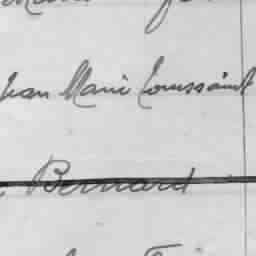 Jean Marie Toussaint
Bernard